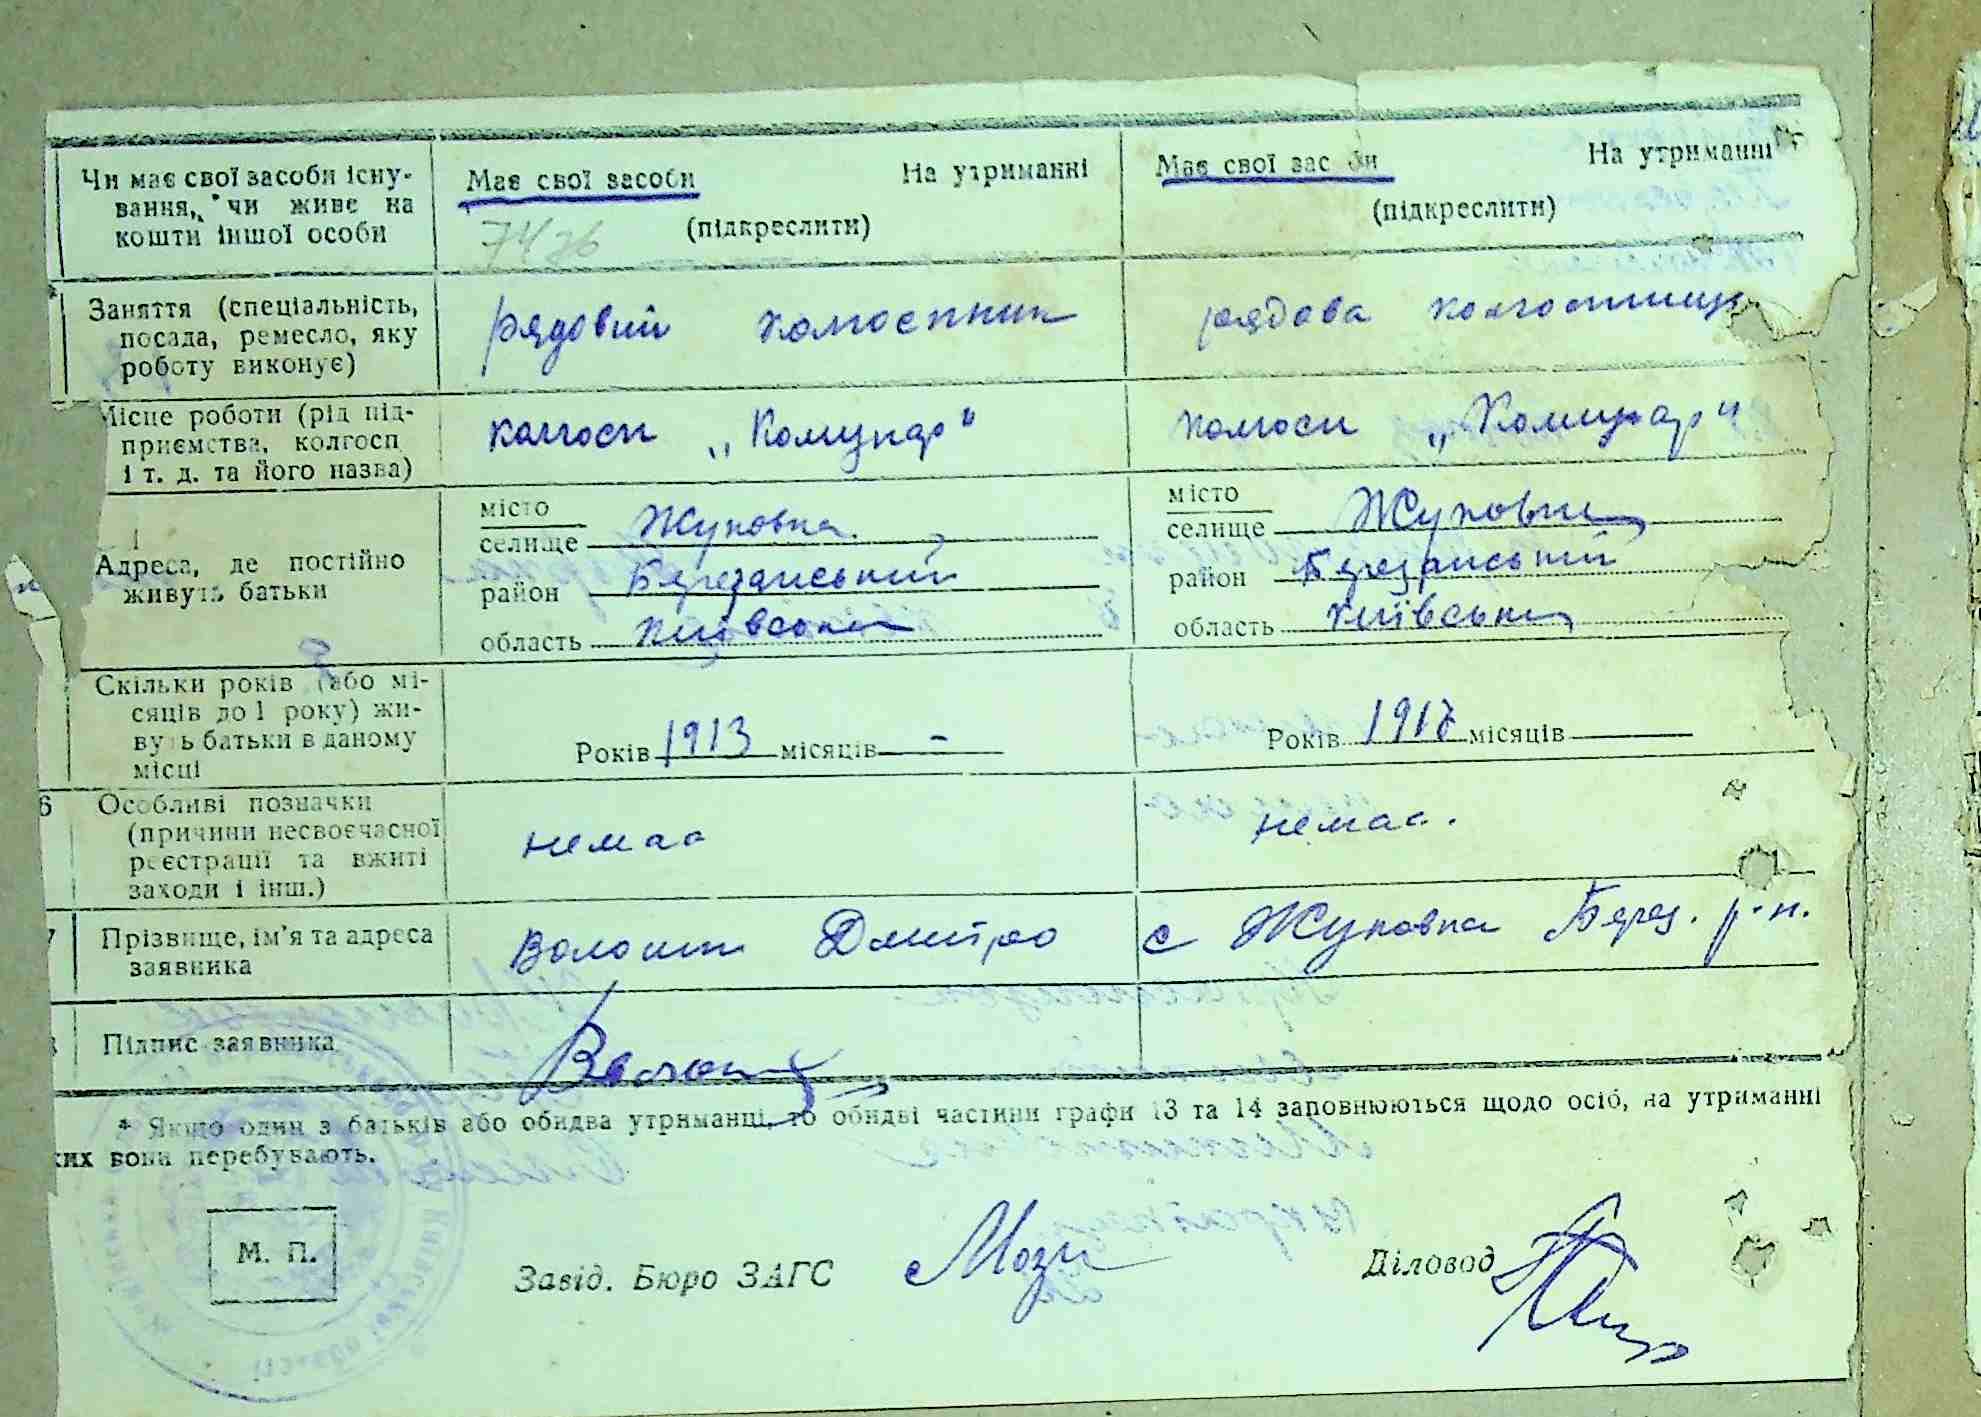 Чи має свої засоби існу-
вання, чи живе на
кошти іншої особи
Має свої засоби На утриманні
(підкреслити)
Має свої зас би На утриманні
(підкреслити)
Заняття (спеціальність,
посада, ремесло, яку
роботу виконує)
рядовий колгоспник
рядова колгоспниця
Місце роботи (рід під-
приємства, колгосп
і т. д. та його назва)
колгосп „Комунар"
колгосп „Комунар"
Адреса, де постійно
живуть батьки
місто
селище Жуковка
район Березанський
область Київська
місто
селище Жуковка
район Березанський
область Київська
Скільки років (або мі-
сяців до 1 року) жи-
вуть батьки в даному
місці
Років 1913 місяців -
Років місяців
6 Особливі позначки
(причини несвоєчасної
реєстрації та вжиті
заходи і інш.)
немає
немає.
7 Прізвище, ім'я та адреса
заявника
Волошин Дмитро с Жуковка Берез. р-н.
Підпис заявника
* Якщо один з батьків або обидва утриманці, то обидві частини графи 13 та 14 заповнюються щодо осіб, на утриманні
ких вони перебувають.
М. П.
Завід. Бюро ЗАГС
Діловод